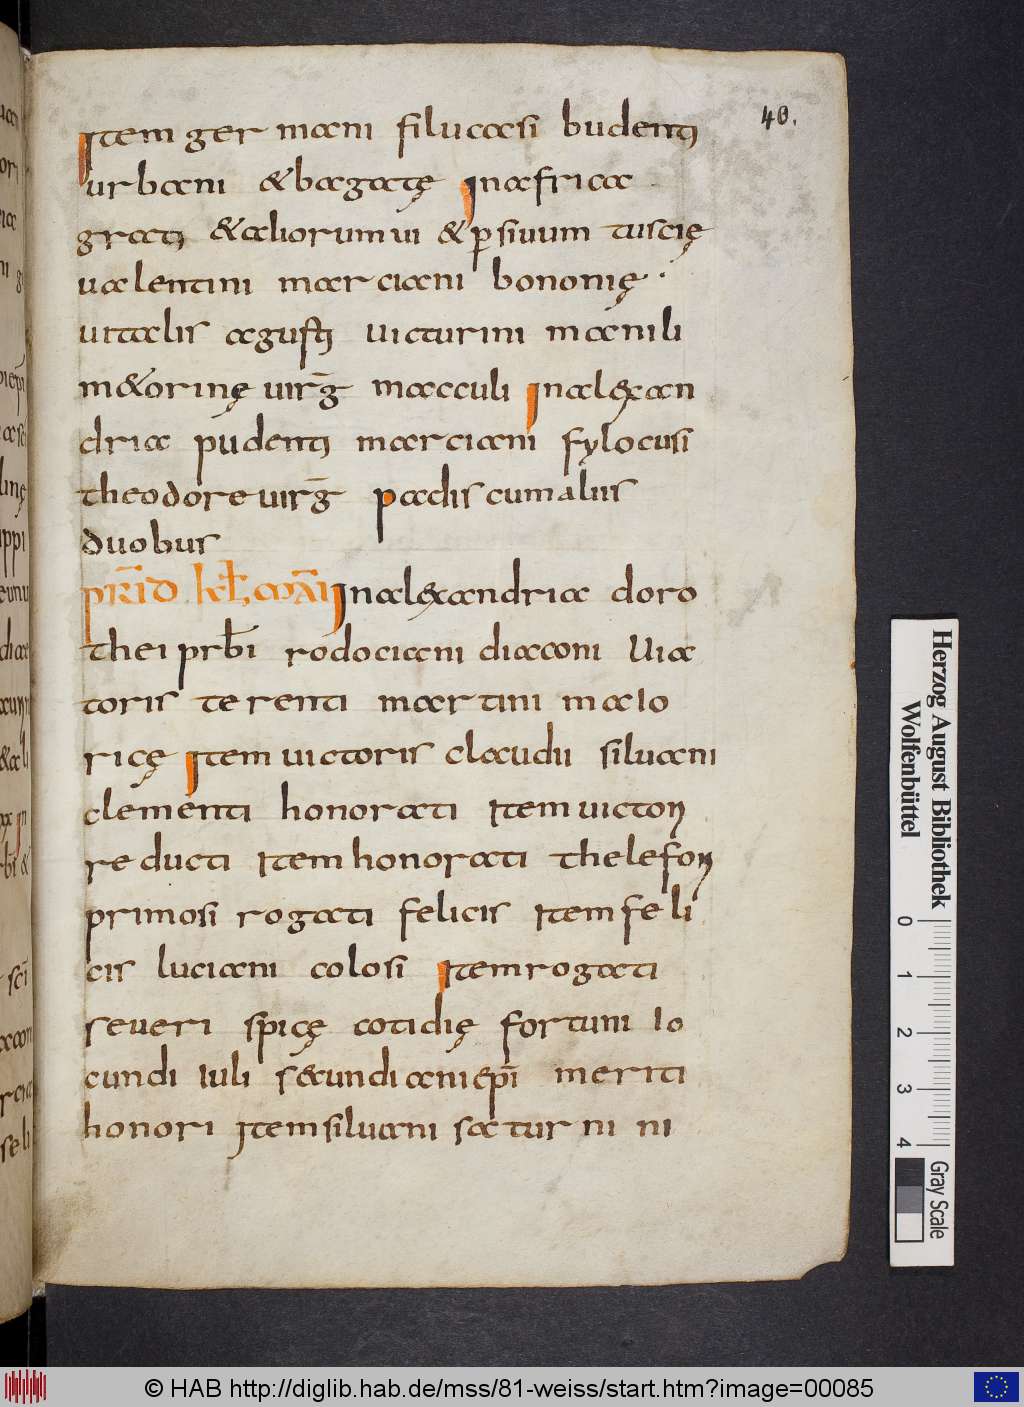 40.
Item germani filucasi budenti
urbani &bagatę Inafrica
grati &aliorum vi &psivum tuscię
ualentini marciani bononię ·
uitalis agusti uicturini manili
m&orinę uirḡ macculi Inalęxan
dria pudenti marciani fylocusi
theodore uirḡ padis cum aliis
duobus
PRID KL MAI Inalęxandria doro
thei prƀi rodociani diaconi Uia
toris terenti martini maio
ricę Item uictoris claudii siluani
clementi honorati Item uictori
reducti Item honorati thelefori
primosi rogati felicis Item feli
cis luciani colosi Item rogati
seueri spicę cotidię fortuni Io
cundi Iuli s&undiani epī meriti
honori Item siluani saturnini
Herzog August Bibliothek
Wolfenbüttel
0 1 2 3 4
Gray Scale
© HAB http://diglib.hab.de/mss/81-weiss/start.htm?image=00085